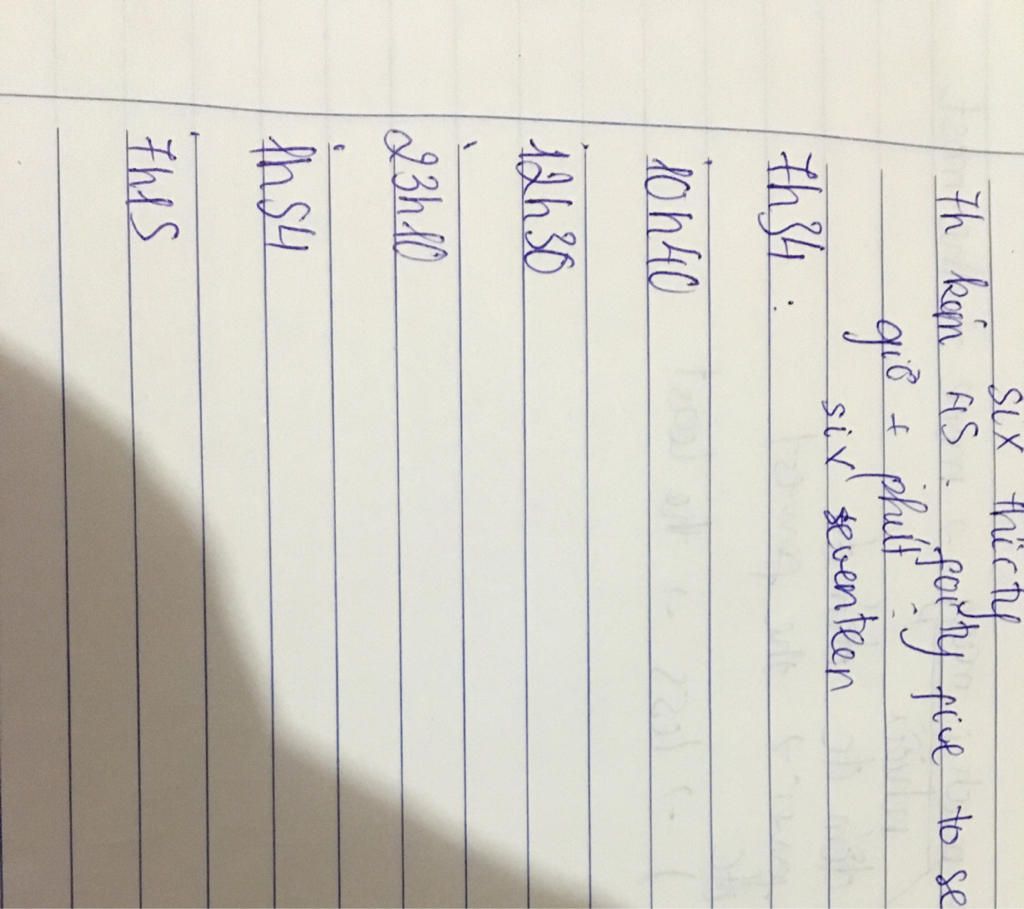 six thirty
7h kém 45. forty five to se
giờ + phút :
six seventeen
7h34 :
10h40
12h30
23h10
1h54
7h15